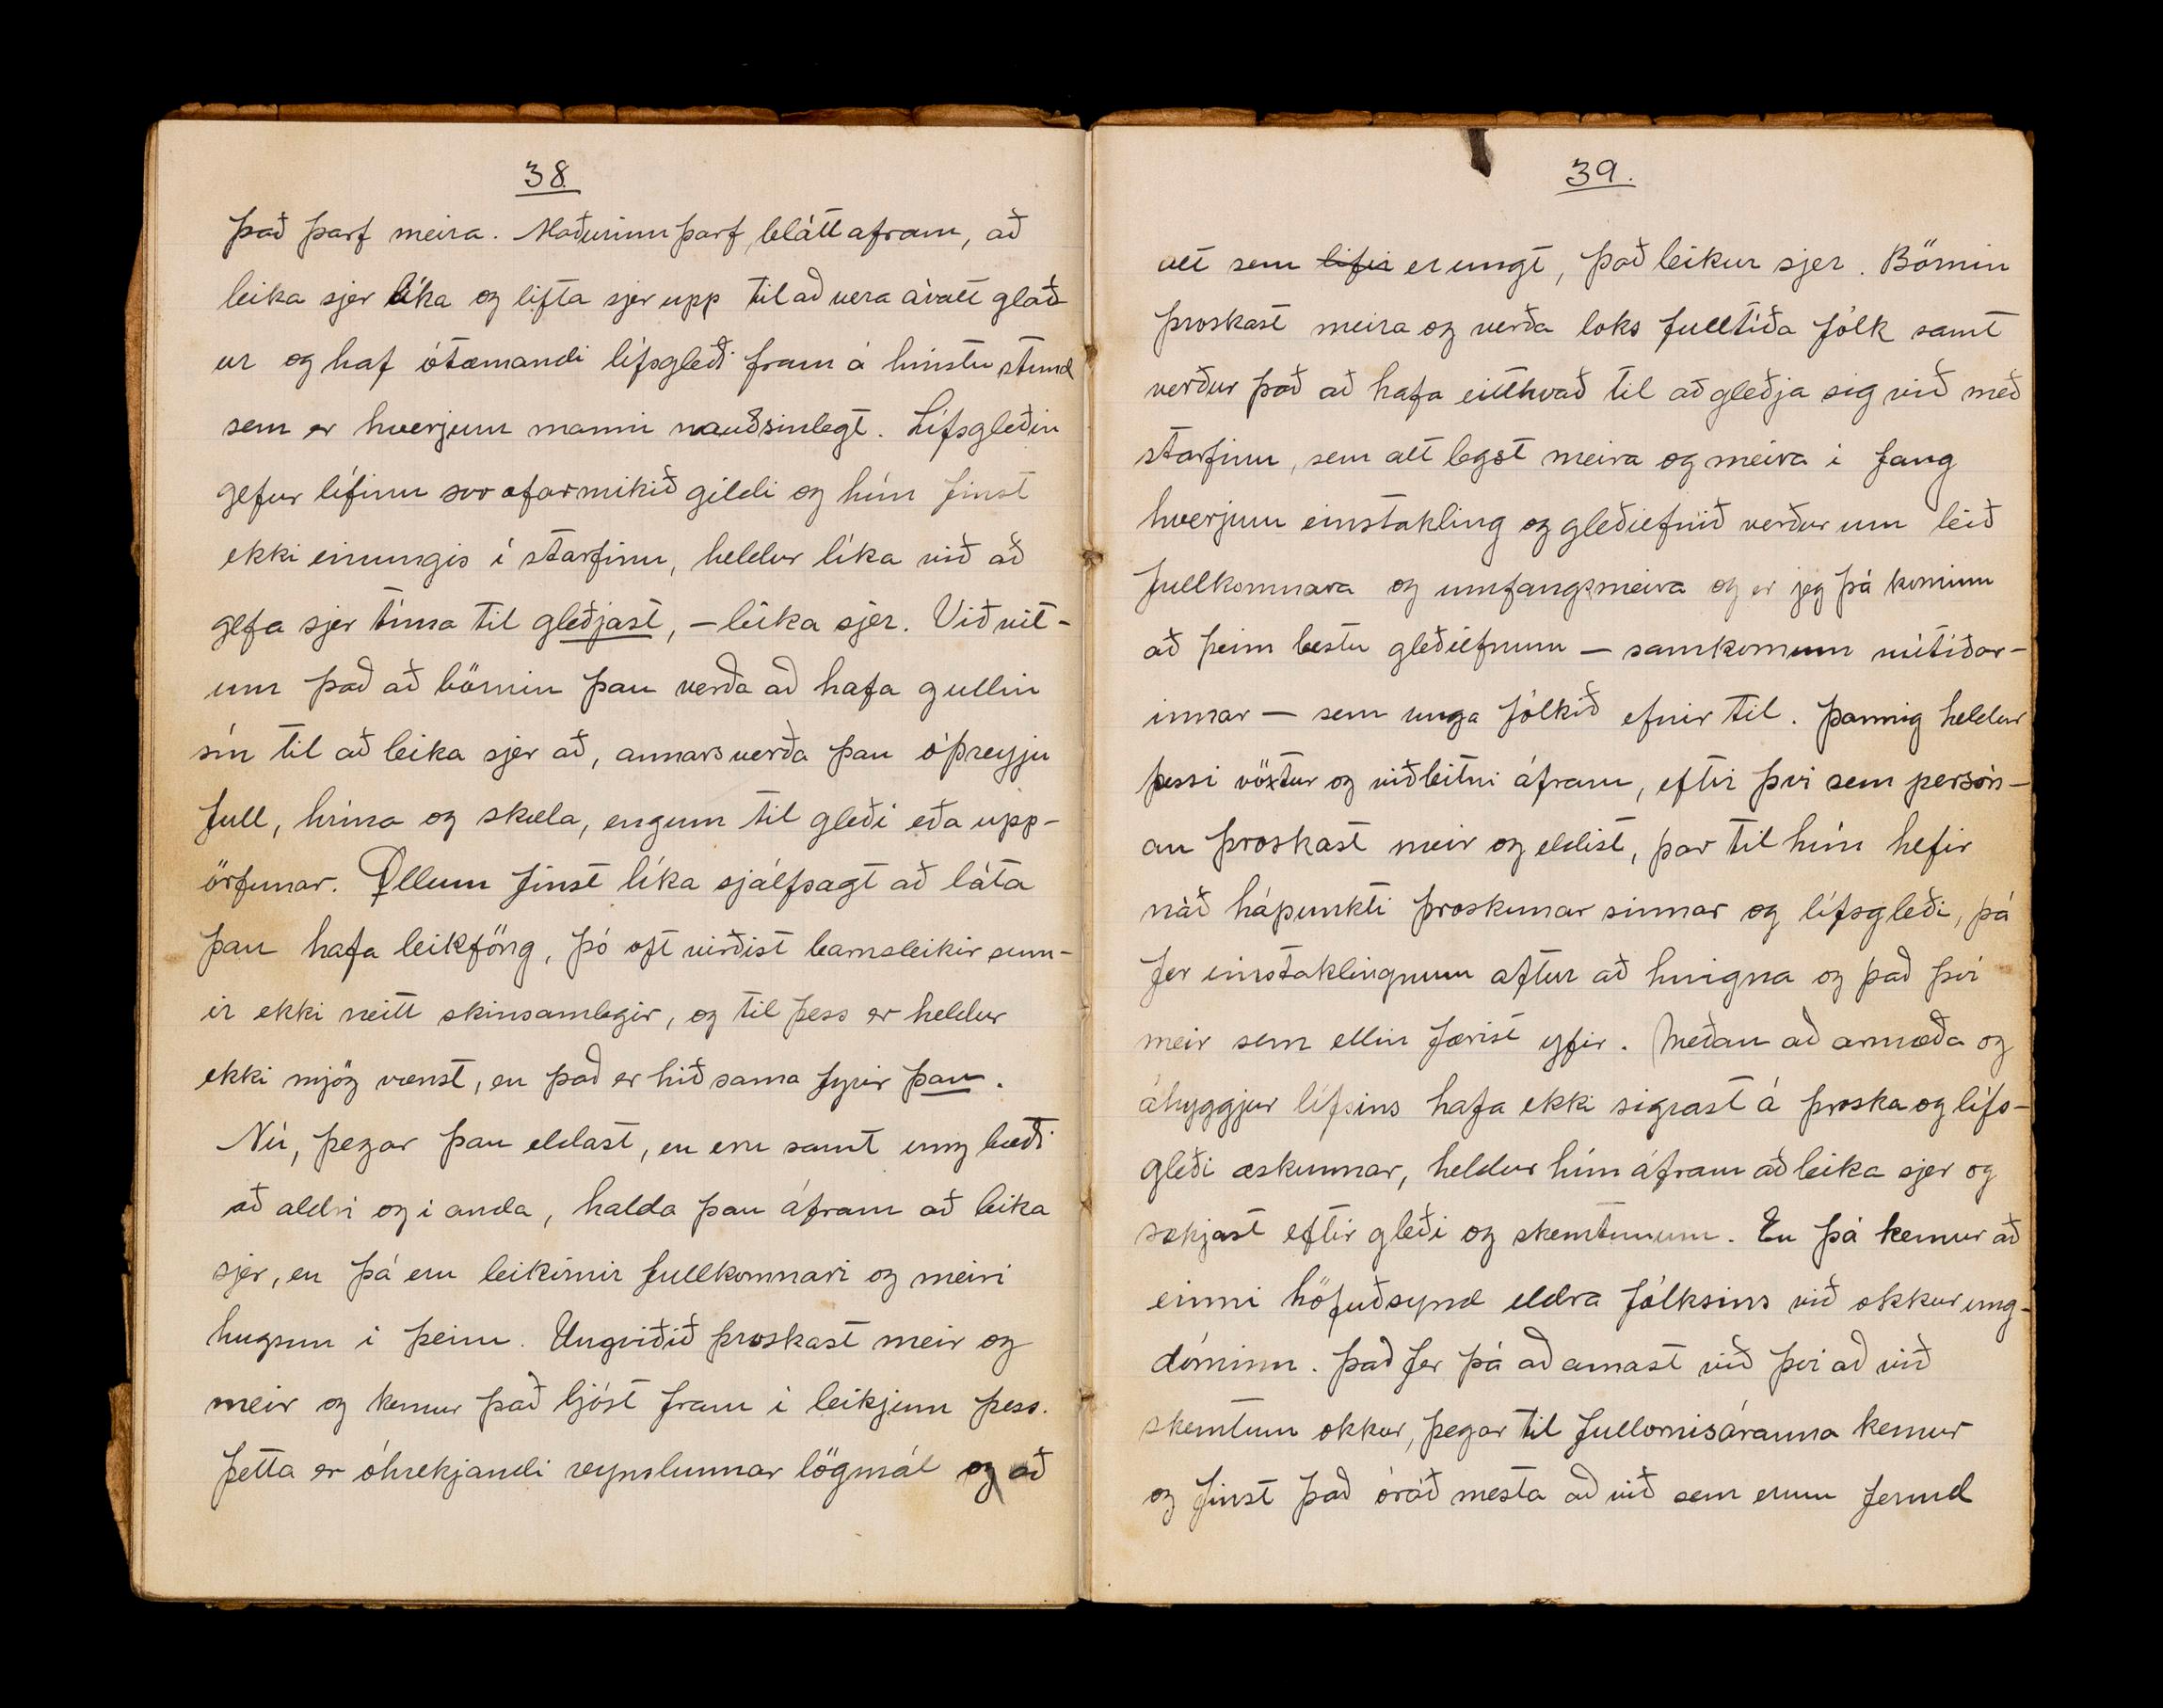 38.
það þarf meira. Maðurinn þarf, blátt afram, að
leika sjer líka og lifta sjer upp til að vera ávalt glað-
ur og haf ótæmandi lífsgleði fram á hinstu stund
sem er hverjum manni nauðsinlegt. Lífsgleðin
gefur lífinu svo afarmikið gildi og hún finst
ekki einungis í starfinu, heldur líka við að
gefa sjer tíma til gleðjast, – leika sjer. Við vit-
um það að börnin þau verða að hafa gullin
sín til að leika sjer að, annars verða þau óþreyju
full, hrína og skæla, engum til gleði eða upp-
örfunar. Öllum finst líka sjálfsagt að láta
þau hafa leikföng, þó oft virðist barnsleikir sum-
ir ekki neitt skinsamlegir, og til þess er heldur
ekki mjög vænst, en það er hið sama fyrir þau.
Nú, þegar þau eldast, en eru samt ung bæði
að aldri og i anda, halda þau áfram að leika
sjer, en þá eru leikirnir fullkomnari og meiri
hugsun i þeim. Ungviðið þroskast meir og
meir og kemur það ljóst fram i leikjum þess.
Þetta er óhrekjandi reynslunnar lögmál og að
39.
alt sem lifir er ungt, það leikur sjer. Börnin
þroskast meira og verða loks fulltíða fólk samt
verður það að hafa eitthvað til að gleðja sig við með
starfinu, sem alt legst meira og meira i fang
hverjum einstakling og gleðiefnið verður um leið
fullkomnara og umfangsmeira og er jeg þá kominn
að þeim bestu gleðiefnum – samkomum nútíðar-
innar – sem unga fólkið efnir til. Þannig heldur
þessi vöxtur og viðleitni áfram, eftir því sem persón-
an þroskast meir og eldist, þar til hún hefir
náð hápunkti þroskunar sinnar og lífsgleði, þá
fer einstaklingnum aftur að hnigna og það því
meir sem ellin færist yfir. Meðan að armæða og
áhyggjur lífsins hafa ekki sigrast á þroska og lífs-
gleði æskunnar, heldur hún áfram að leika sjer og
sækjast eftir gleði og skemtunum. En þá kemur að
einni höfuðsynd eldra fólksins við okkur ung-
dóminn. Það fer þá að amast við því að við
skemtum okkur, þegar til fullornisáranna kemur
og finst það óráð mesta að við sem erum fermd